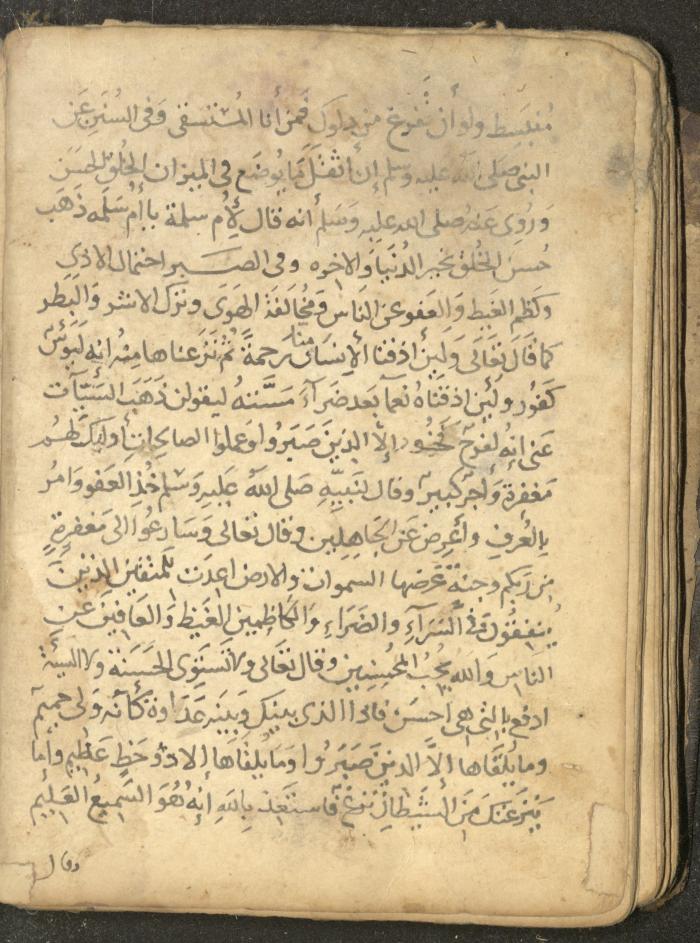 منبسط ولو أن تفرغ من دلوك في إنا المستسقي وفي السنن عن
النبي صلى الله عليه وسلم إن أثقل ما يوضع في الميزان الخلق الحسن
وروي عنه صلى الله عليه وسلم أنه قال لأم سلمة يا أم سلمه ذهب
حسن الخلق بخير الدنيا والاخره وفي الصبر احتمال الاذي
وكظم الغيظ والعفو عن الناس ومخالفة الهوى وترك الاشر والبطر
كما قال تعالى ولين أذقنا الإنسان منا رحمة ثم نزعناها منه انه ليوس
كفور ولئن اذقناه نعما بعد ضراء مسته ليقولن ذهب السيآت
عني إنه لفرح فخور إلا الذين صبروا وعملوا الصالحات أوليك لهم
مغفرة وأجر كبير وقال لنبيه صلى الله عليه وسلم خذ العفو وامر
بالعرف وأعرض عن الجاهلين وقال تعالى وسارعوا الى مغفرة
من ربكم وجنة عرضها السموات والارض اعدت للمتقين الذين
ينفقون في السراء والضراء والكاظمين الغيظ والعافين عن
الناس والله يحب المحسنين وقال تعالى ولا تستوى الحسنة ولا السيئة
ادفع بالتي هي احسن فاذا الذى بينك وبينه عداوة كأنه ولى حميم
وما يلقاها إلا الذين صبروا وما يلقاها إلا ذو حظ عظيم وإما
ينزغنك من الشيطان نزغ فاستعذ بالله إنه هو السميع العليم
وقال